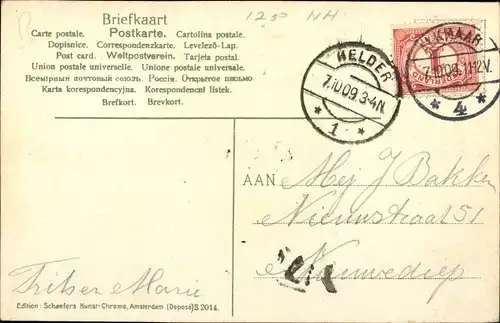 125 NH
Briefkaart
Carte postale. Postkarte. Cartolina postale.
Dopisnice. Correspondenzkarte. Levelező-Lap.
Post card. Weltpostverein. Tarjeta postal.
Union postale universelle. Unione postale universale.
Всемірный почтовый союзъ. Россія. Открытое письмо
Karta korespondencyjna. Korespondenčni lístek.
Brefkort. Brevkort.
HELDER
7.10.09.3-4N.
* 1 *
ALKMAAR
7.10.09. 11-12.V.
* 4 *
AAN Mej J Bakker
Nieuwstraat 51
Nieuwediep
Marie
Edition: Schaefers Kunst-Chromo, Amsterdam (Deposé) S 2014.